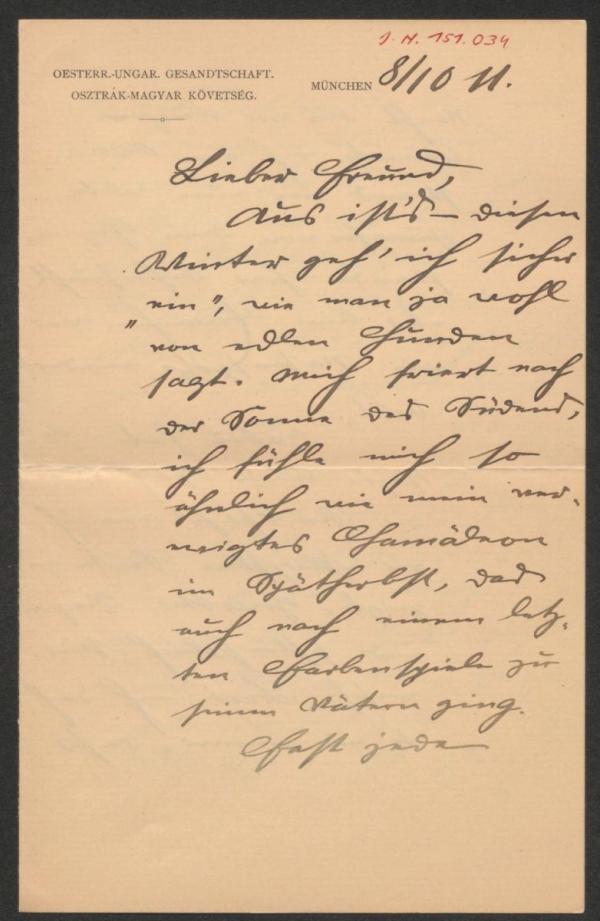 J. N. 151.034
OESTERR.-UNGAR. GESANDTSCHAFT.
OSZTRÁK-MAGYAR KÖVETSÉG.
MÜNCHEN 8/10 11.
Lieber Freund,
Aus ist's – diesen
Winter geh' ich sicher
ein", wie man ja wohl
"von edlen Hunden
sagt. Mich friert nach
der Sonne des Südens,
ich fühle mich so
ähnlich wie mein ver-
ewigtes Chamäleon
im Spätherbst, das
auch nach einem letz-
ten Farbenspiele zu
seinen Vätern ging.
Fast jede